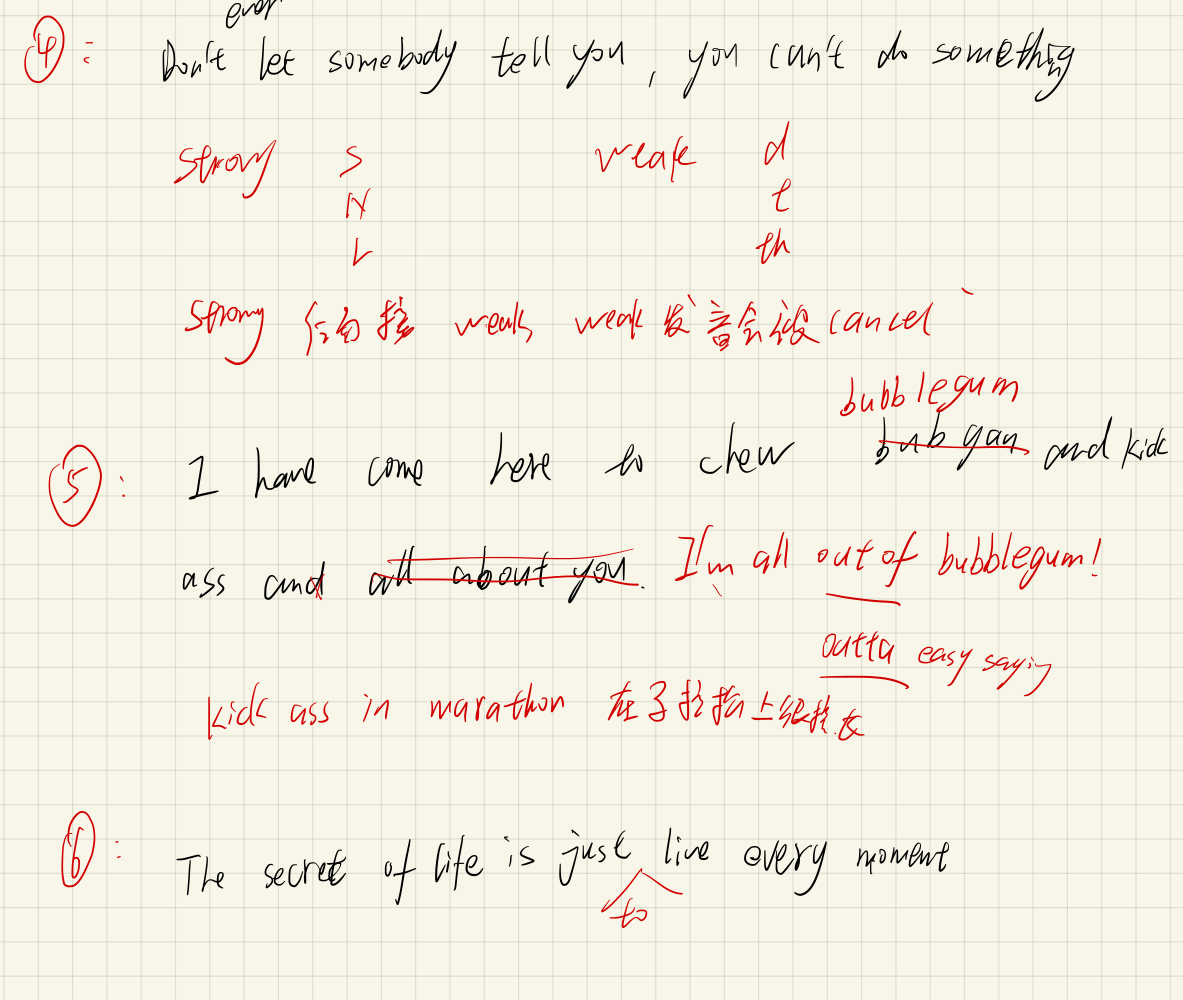 ever
④: Don't let somebody tell you, you can't do something
strong S weak d
N t
L th
strong 后面接 weak weak 发音会被 cancel
bubblegum
⑤: I have come here to chew bub gan and kick
ass and all about you. I'm all out of bubblegum!
outta easy saying
kick ass in marathon 在马拉松上很擅长
⑥: The secret of life is just live every moment
to